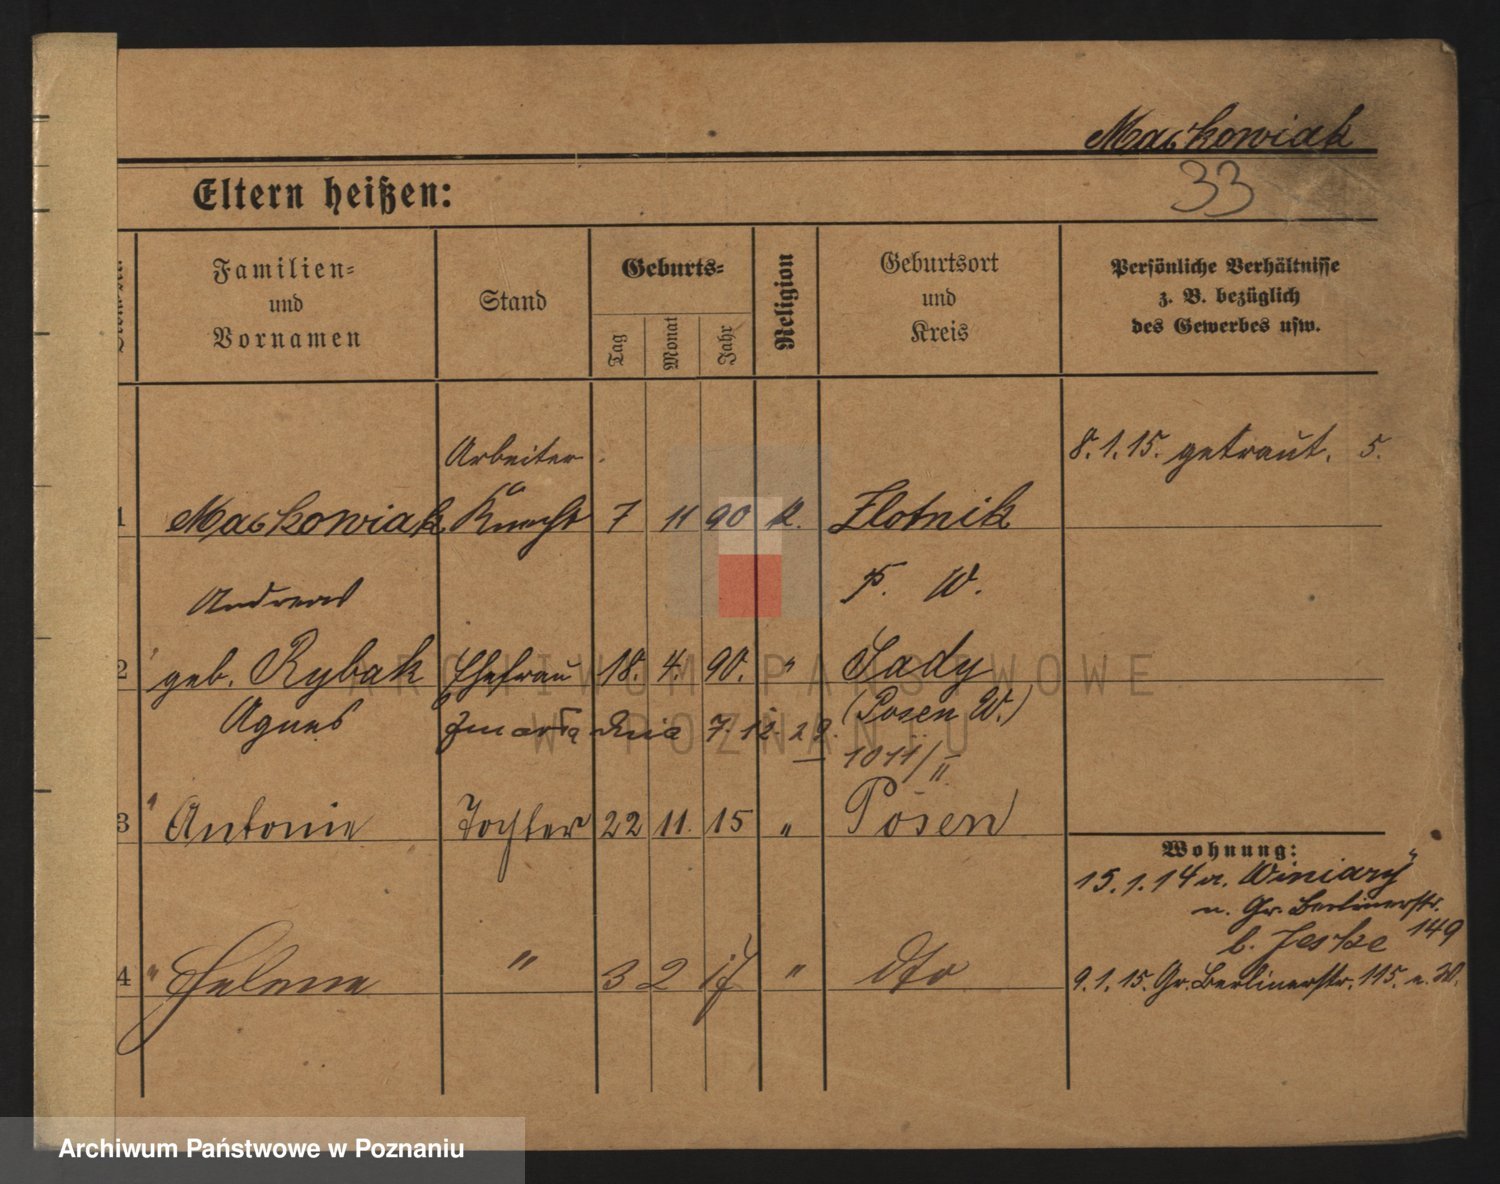 Maćkowiak
33
Eltern heißen:
Familien=
und
Vornamen
Stand
Geburts=
Tag
Monat
Jahr
Religion
Geburtsort
und
Kreis
Persönliche Verhältnisse
z. B. bezüglich
des Gewerbes usw.
8.1.15. getraut. 5.
Arbeiter
1 Maćkowiak Knecht 7 11 90 k. Zlotnik
Andreas P. W.
2 geb. Rybak Ehefrau 18. 4. 90. " Sady
Agnes zmarła dnia 7.12.29. (Posen W.)
1011/II
3 Antonie Tochter 22 11. 15 " Posen
Wohnung:
15.1.14 a. Winiary
n. Gr. Berlinerstr. 149
b. Jeske
4 " Helene " 3 2 17 " dto
9.1.15. Gr. Berlinerstr. 115. n. W.
ARCHIWUM PAŃSTWOWE
W POZNANIU
Archiwum Państwowe w Poznaniu